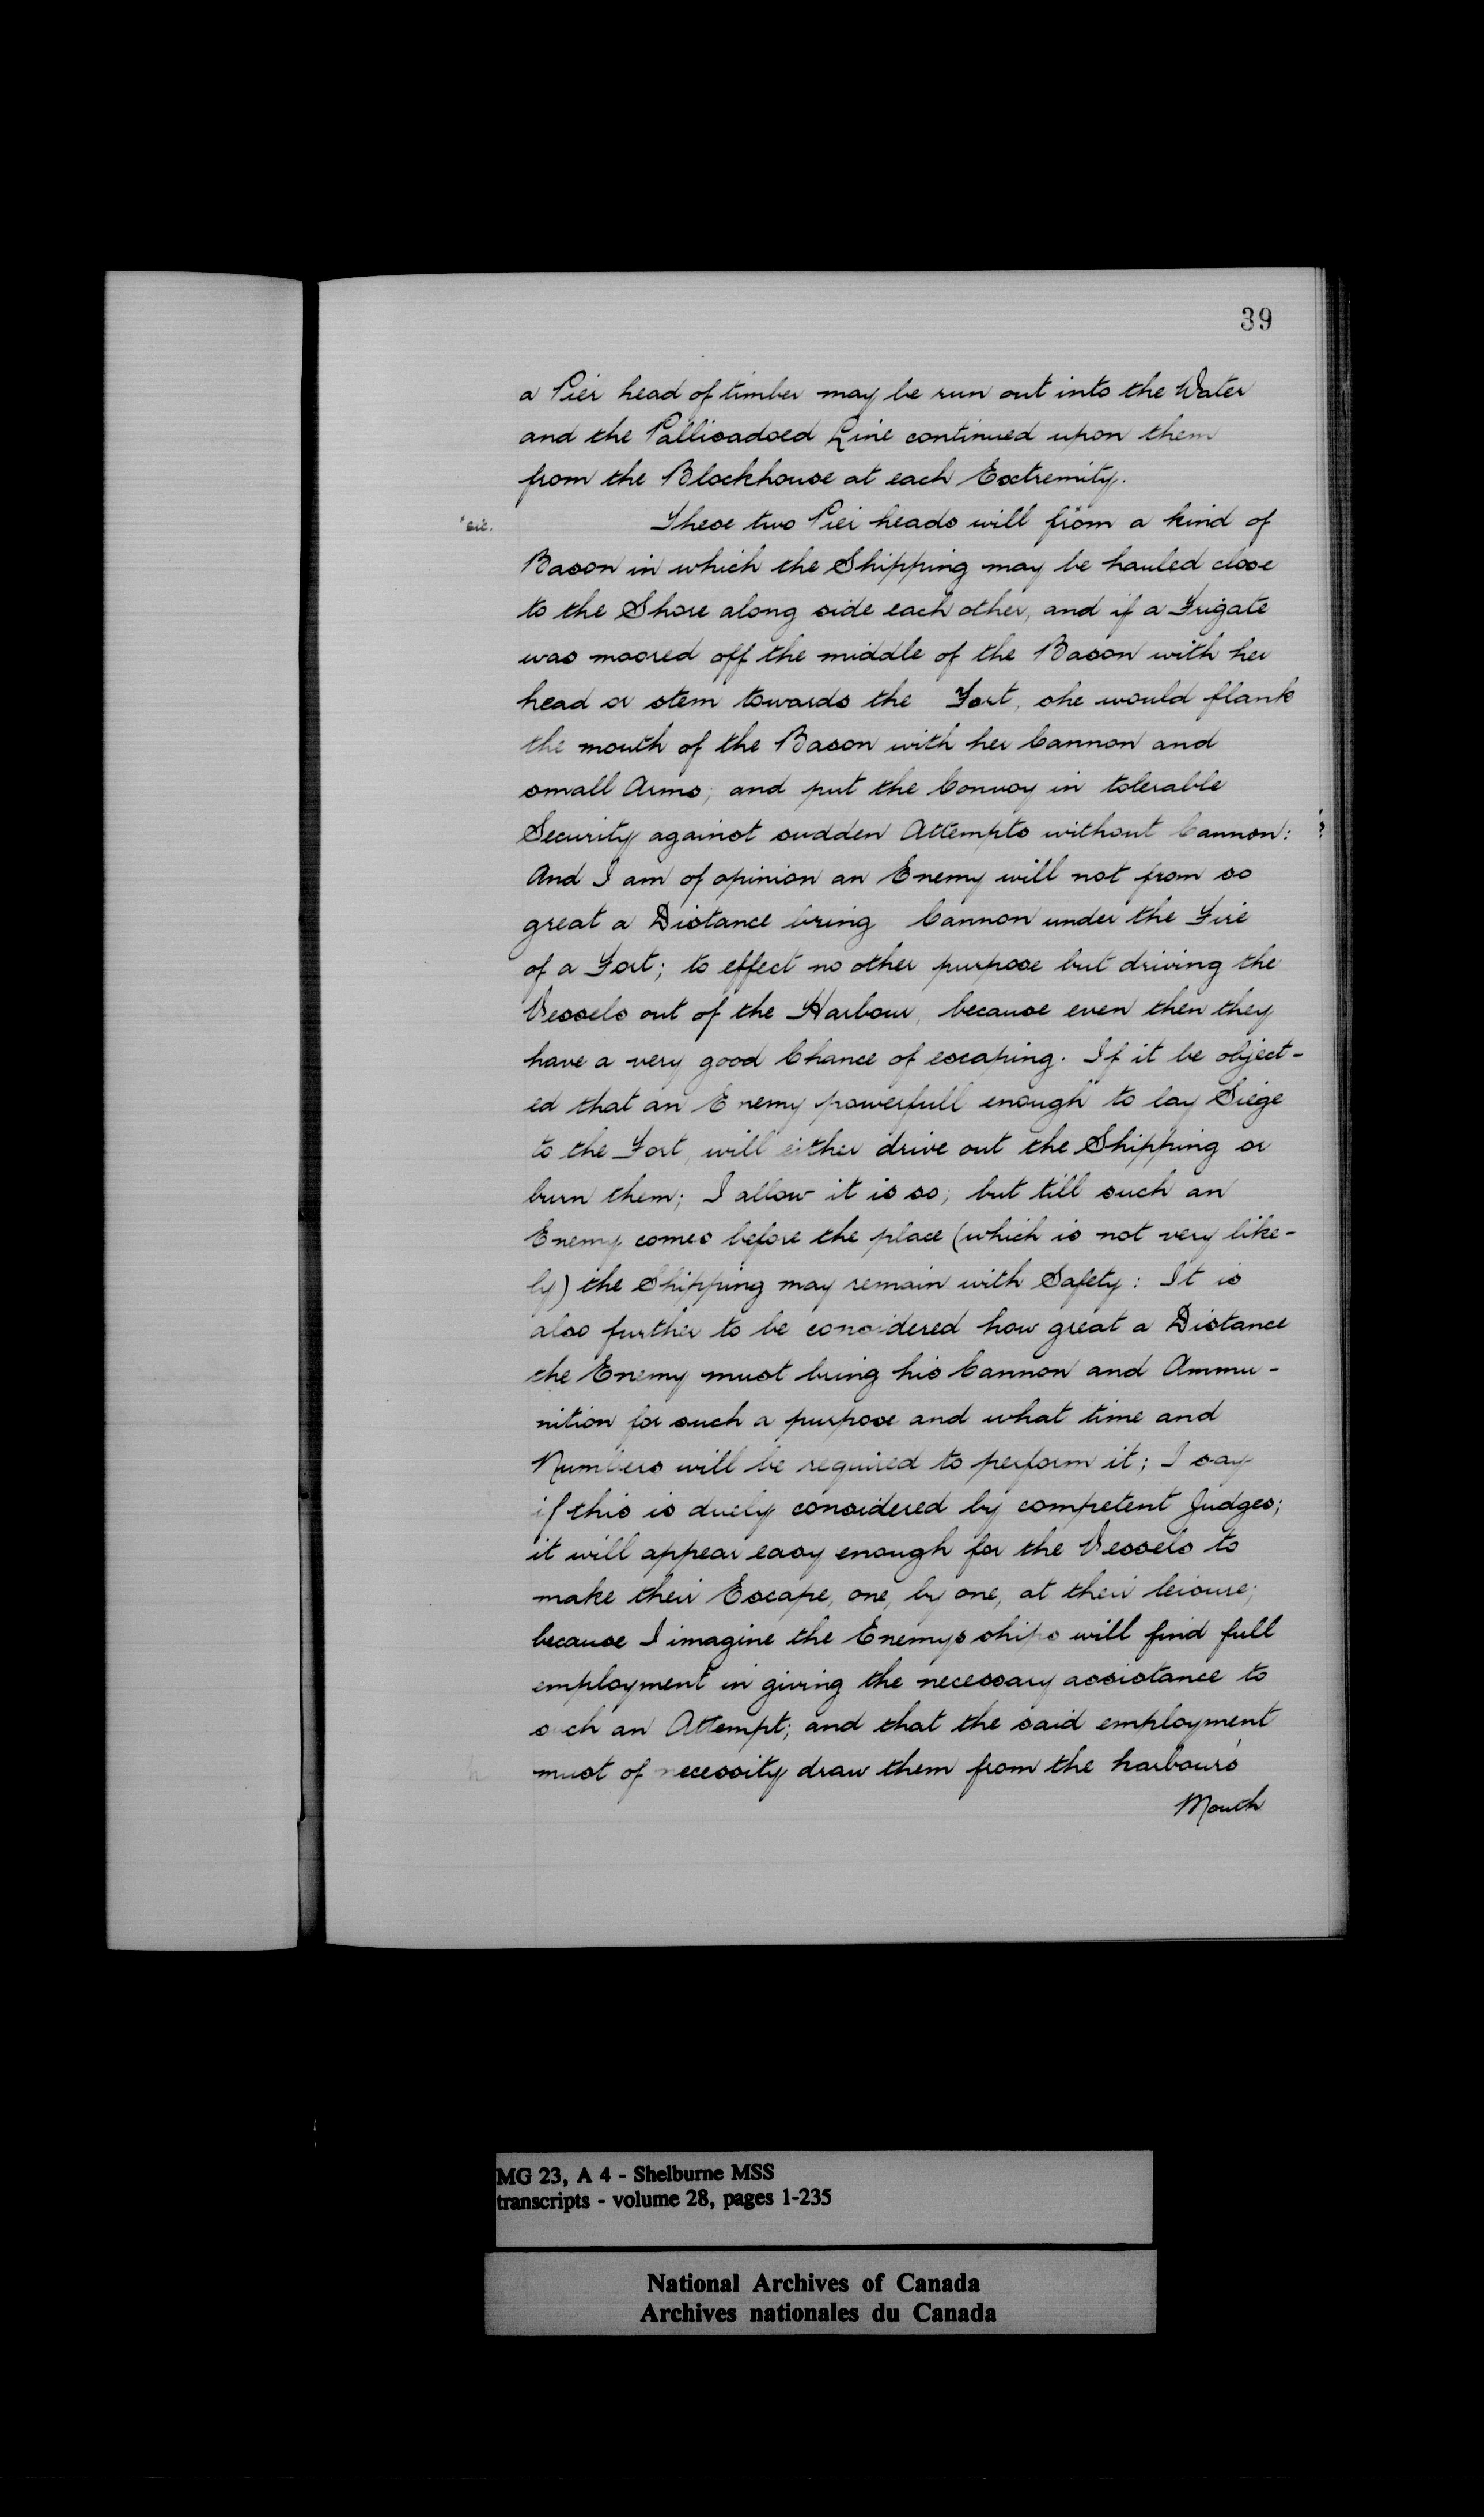 39
a Pier head of timber may be run out into the Water
and the Pallisadoed Line continued upon them
from the Blockhouse at each Extremity.
*sic. These two Pier heads will from a kind of
Bason in which the Shipping may be hauled close
to the Shore along side each other, and if a Frigate
was moored off the middle of the Bason with her
head or stern towards the Fort, she would flank
the mouth of the Bason with her Cannon and
small Arms; and put the Convoy in tolerable
Security against sudden Attempts without Cannon:
And I am of opinion an Enemy will not from so
great a Distance bring Cannon under the Fire
of a Fort; to effect no other purpose but driving the
Vessels out of the Harbour, because even then they
have a very good Chance of escaping. If it be object-
ed that an Enemy powerfull enough to lay Siege
to the Fort, will either drive out the Shipping or
burn them; I allow it is so; but till such an
Enemy comes before the place (which is not very like-
ly) the Shipping may remain with Safety: It is
also further to be considered how great a Distance
the Enemy must bring his Cannon and Ammu-
nition for such a purpose and what time and
Numbers will be required to perform it; I say
if this is duely considered by competent Judges;
it will appear easy enough for the Vessels to
make their Escape, one, by one, at their leisure;
because I imagine the Enemys ships will find full
employment in giving the necessary assistance to
such an Attempt; and that the said employment
must of necessity draw them from the harbours
Mouth
MG 23, A 4 - Shelburne MSS
transcripts - volume 28, pages 1-235
National Archives of Canada
Archives nationales du Canada